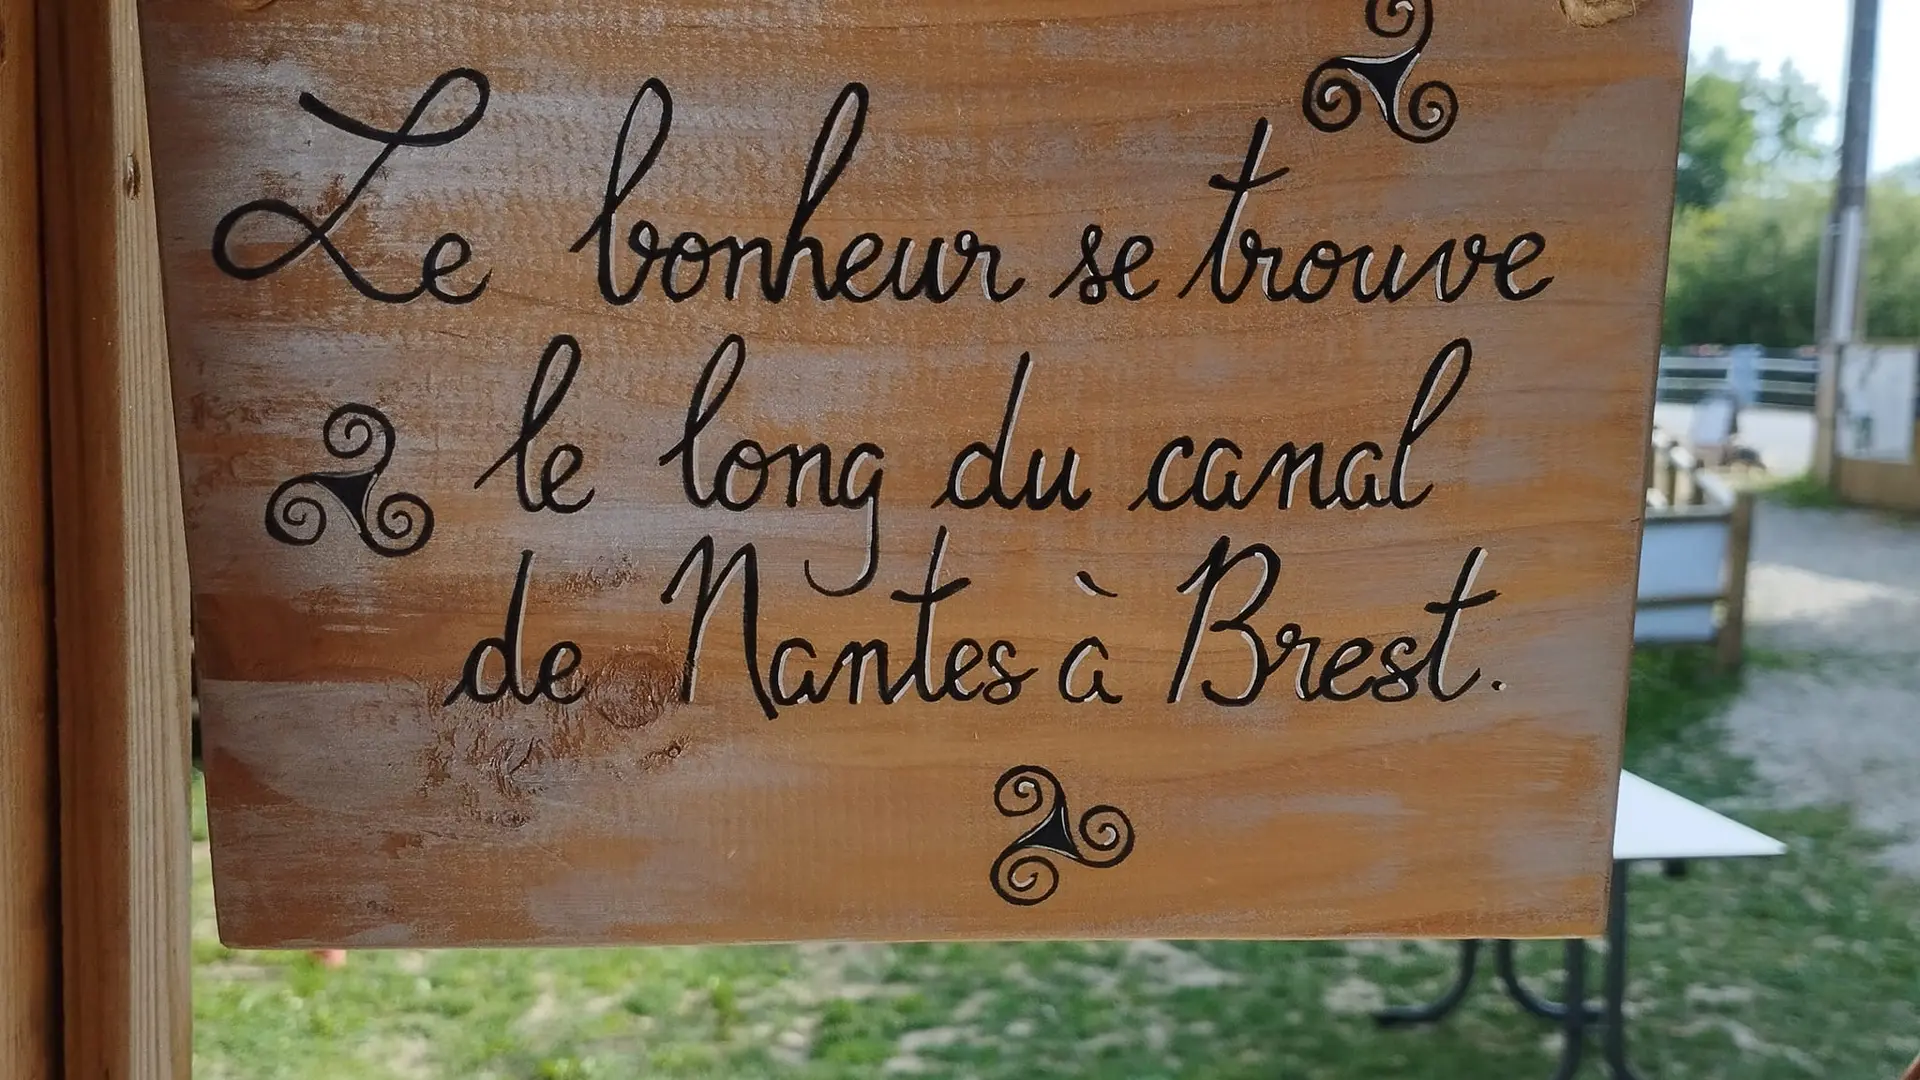 Le bonheur se trouve
le long du canal
de Nantes à Brest.